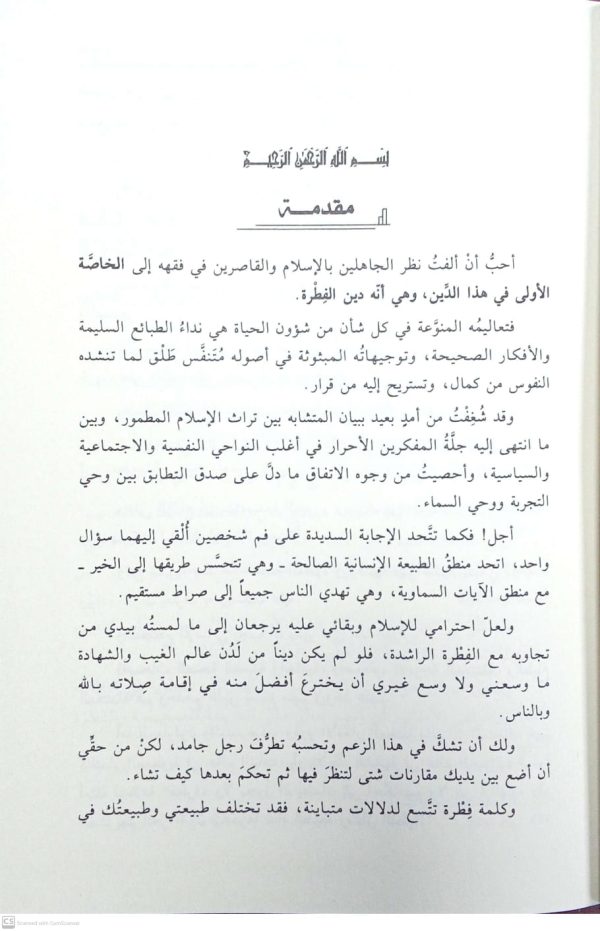 بِسْمِ اللَّهِ الرَّحْمَٰنِ الرَّحِيمِ
مقدمــة
أحبُّ أنْ ألفتُ نظر الجاهلين بالإسلام والقاصرين في فقهه إلى الخاصَّة
الأولى في هذا الدِّين، وهي أنّه دين الفِطْرة.
فتعاليمُه المنوَّعة في كل شأن من شؤون الحياة هي نداءُ الطبائع السليمة
والأفكار الصحيحة، وتوجيهاتُه المبثوثة في أصوله مُتَنفَّس طَلْق لما تنشده
النفوس من كمال، وتستريح إليه من قرار.
وقد شُغِفْتُ من أمدٍ بعيد ببيان المتشابه بين تراث الإسلام المطمور، وبين
ما انتهى إليه جلَّةُ المفكرين الأحرار في أغلب النواحي النفسية والاجتماعية
والسياسية، وأحصيتُ من وجوه الاتفاق ما دلَّ على صدق التطابق بين وحي
التجربة ووحي السماء.
أجل! فكما تتَّحد الإجابة السديدة على فم شخصين أُلْقي إليهما سؤال
واحد، اتحد منطقُ الطبيعة الإنسانية الصالحة ـ وهي تتحسَّس طريقها إلى الخير ـ
مع منطق الآيات السماوية، وهي تهدي الناس جميعاً إلى صراط مستقيم.
ولعلّ احترامي للإسلام وبقائي عليه يرجعان إلى ما لمستُه بيدي من
تجاوبه مع الفِطْرة الراشدة، فلو لم يكن ديناً من لَدُن عالم الغيب والشهادة
ما وسعني ولا وسع غيري أن يخترعَ أفضلَ منه في إقامة صِلاته بالله
وبالناس.
ولك أن تشكَّ في هذا الزعم وتحسبُه تطرُّفَ رجل جامد، لكنْ من حقِّي
أن أضع بين يديك مقارنات شتى لتنظرَ فيها ثم تحكمَ بعدها كيف تشاء.
وكلمة فِطْرة تتَّسع لدلالات متباينة، فقد تختلف طبيعتي وطبيعتُك في
CS Scanned with CamScanner